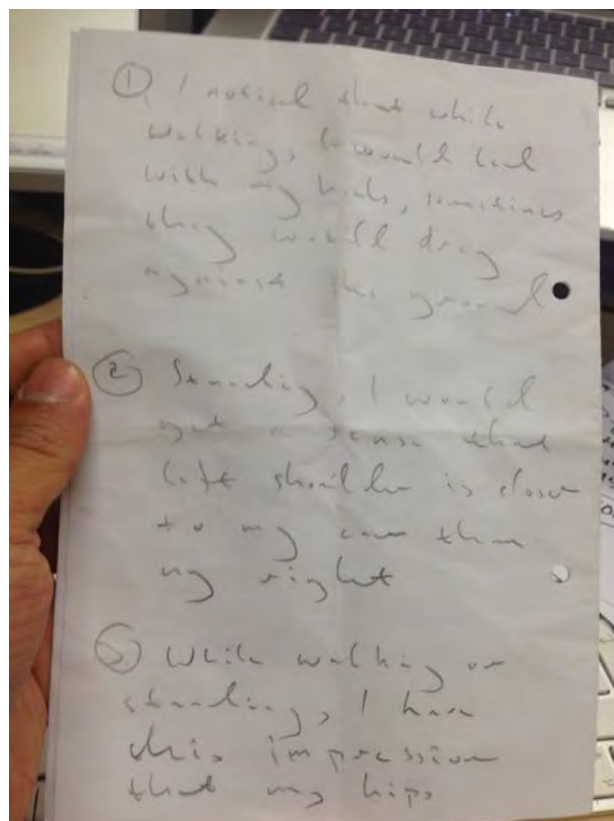 ① I noticed that while
walking, I would lead
with my heels, sometimes
they would drag
against the ground
② Standing, I would
get a sense that
left shoulder is closer
to my ear than
my right
③ While walking or
standing, I have
this impression
that my hips